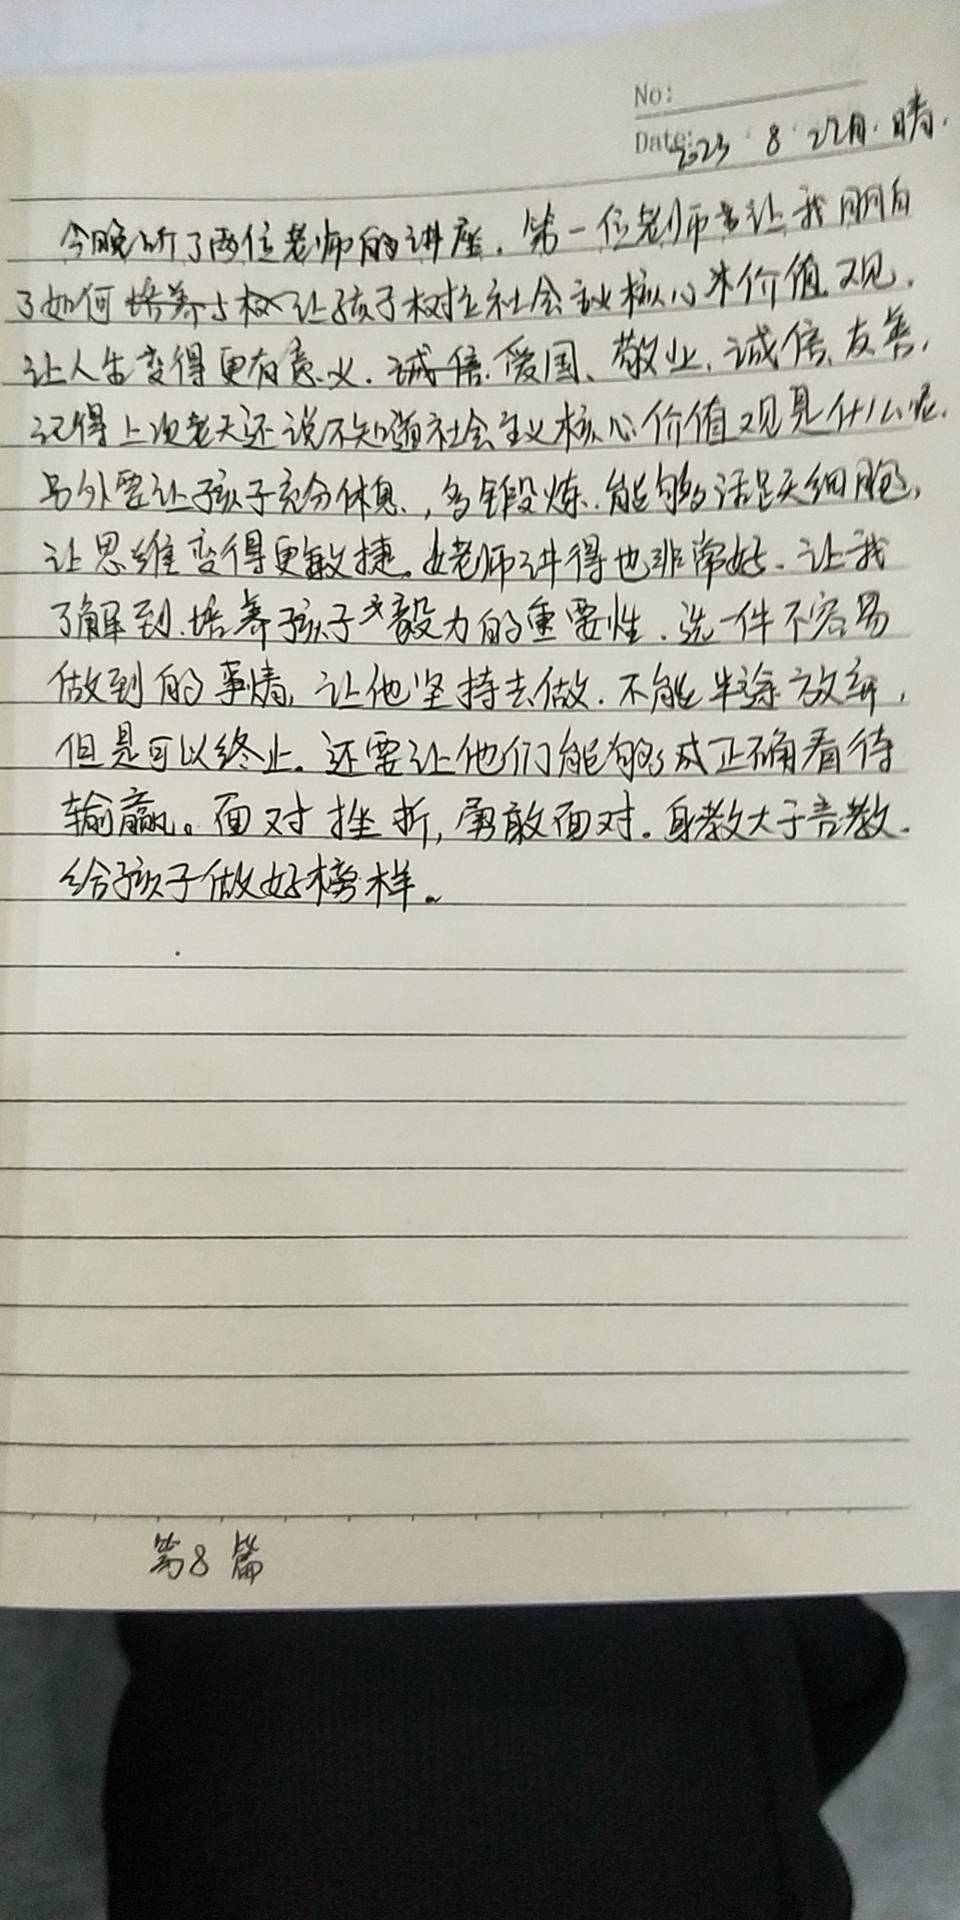 No:
Date: 2023 8 22日. 晴.
今晚听了两位老师的讲座. 第一位老师 让我明白
了如何 让孩子树立社会主义核心 价值观.
让人生变得更有意义. 诚信. 爱国、敬业、诚信、友善,
记得上次老天还说不知道社会主义核心价值观是什么呢.
另外要让孩子充分休息.,多锻炼.能够激活足天细胞,
让思维变得更敏捷。女老师讲得也非常好. 让我
了解到.培养孩子 毅力的重要性. 选一件不容易
做到的事情, 让他坚持去做. 不能半途放弃,
但是可以终止。还要让他们能够 正确看待
输赢。面对挫折,勇敢面对。身教大于言教.
给孩子做好榜样。
第8篇